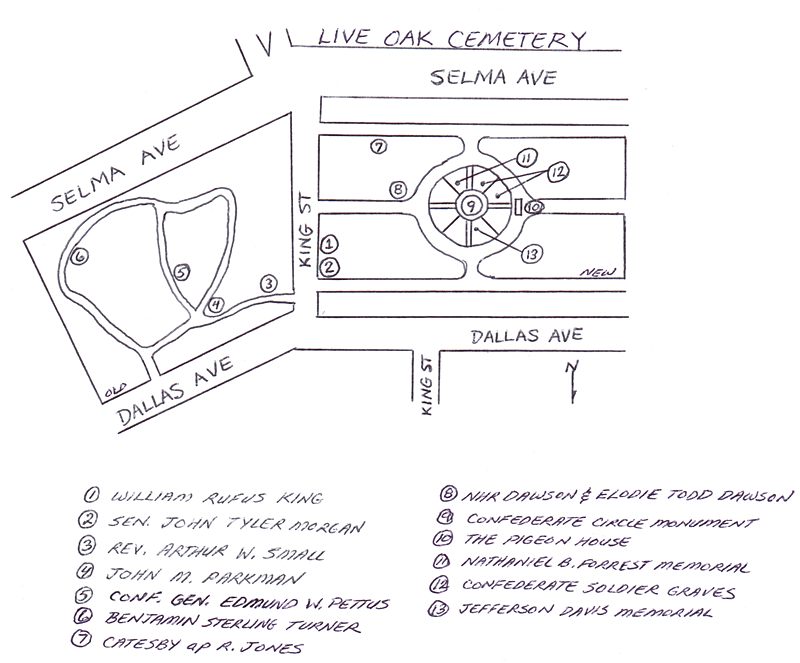 LIVE OAK CEMETERY
SELMA AVE
SELMA AVE
KING ST
7
11
12
8
9
10
6
5
1
2
13
3
4
NEW
OLD
DALLAS AVE
DALLAS AVE
KING ST
N
1 WILLIAM RUFUS KING
2 SEN. JOHN TYLER MORGAN
3 REV. ARTHUR W. SMALL
4 JOHN M. PARKMAN
5 CONF. GEN. EDMUND W. PETTUS
6 BENJAMIN STERLING TURNER
7 CATESBY ap R. JONES
8 NHR DAWSON & ELODIE TODD DAWSON
9 CONFEDERATE CIRCLE MONUMENT
10 THE PIGEON HOUSE
11 NATHANIEL B. FORREST MEMORIAL
12 CONFEDERATE SOLDIER GRAVES
13 JEFFERSON DAVIS MEMORIAL